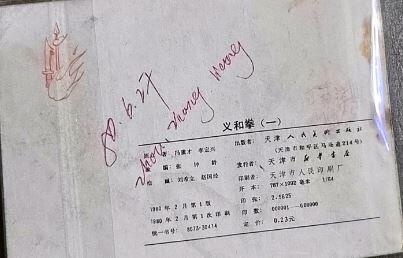 80.6.27
zhang Wang
义和拳（一）
原 著 冯骥才 李定兴
编 张 钟 龄
绘 画 刘希立 赵国经
1980 年 2 月 第 1 版
1980 年 2 月 第 1 次印刷
统一书号：8073·30474
出版者：天津人民美术出版社
（天津市和平区马场道214号）
发行者：天津市新华书店
印刷者：天津市人民印刷厂
开 本：787×1092 毫米 1/64
印 张：2.5625
印 数：000001—600000
定 价：0.23元